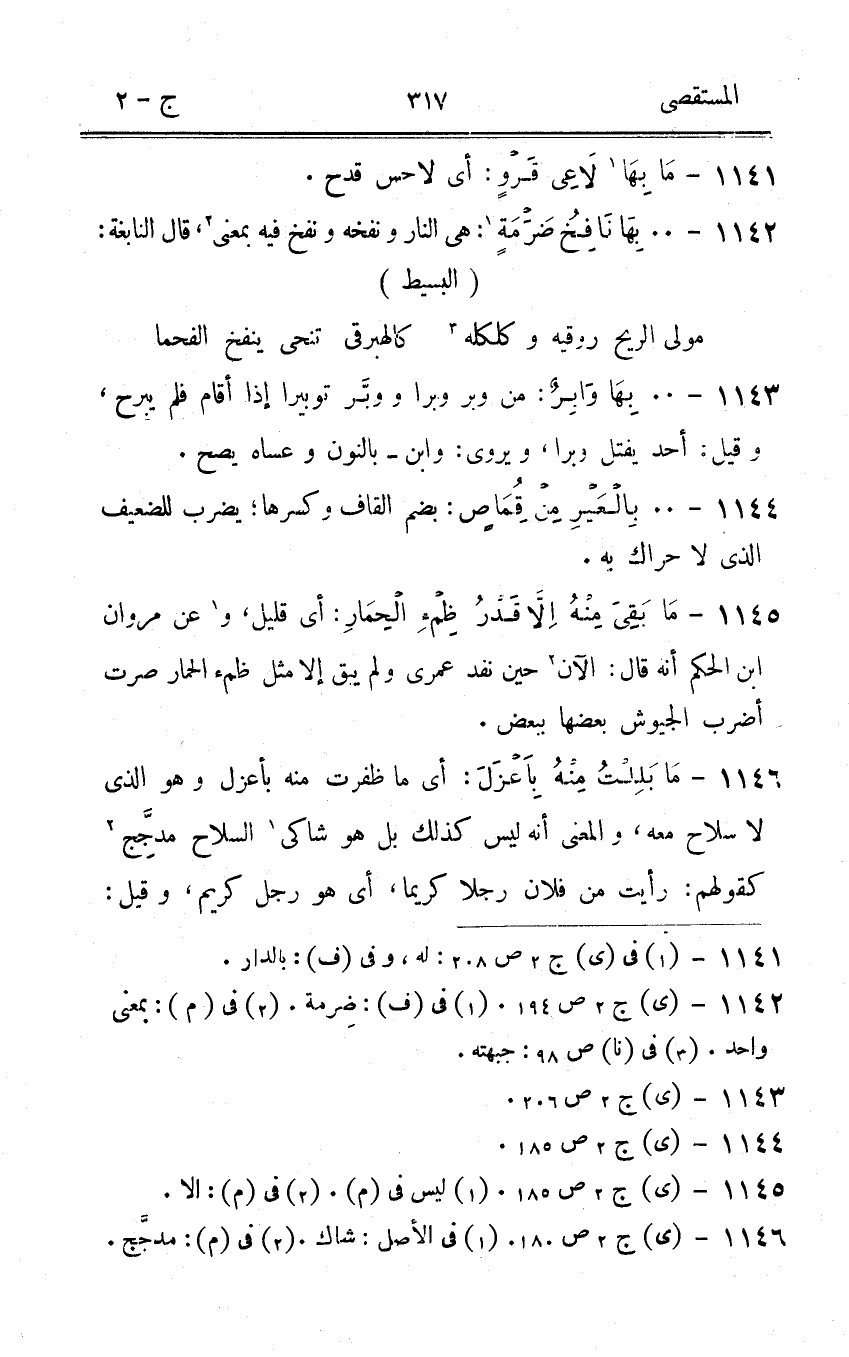 المستقصى ٣١٧ ج - ٢
١١٤١ - مَا بِهَا١ لَاعِى قَرْوٍ: أى لاحس قدح .
١١٤٢ - ٠٠ بِهَا نَافِخُ ضَرَْمَةٍ١: هى النار و نفخه و نفخ فيه بمعنى٢، قال النابغة:
( البسيط )
مولى الريح روقيه و كلكله٣ كالهبرقى تنحى ينفخ الفحما
١١٤٣ - ٠٠ بِهَا وَابِرٌ: من وبر وبرا و وبَّر توبيرا إذا أقام فلم يبرح،
و قيل: أحد يفتل وبرا، و يروى: وابن - بالنون و عساه يصح .
١١٤٤ - ٠٠ بِالْعَيْرِ مِنْ قُِمَاصٍ: بضم القاف وكسرها؛ يضرب للضعيف
الذى لا حراك به .
١١٤٥ - مَا بَقِىَ مِنْهُ اِلَّا قَدْرُ ظِمْءِ الْحِمَارِ: أى قليل، و١ عن مروان
ابن الحكم أنه قال: الآن٢ حين نفد عمرى ولم يبق إلا مثل ظمء الحمار صرت
أضرب الجيوش بعضها ببعض .
١١٤٦ - مَا بَدِلْتُ مِنْهُ بِاَعْزَلَ: أى ما ظفرت منه بأعزل و هو الذى
لا سلاح معه، و المعنى أنه ليس كذلك بل هو شاكى١ السلاح مدجِّج٢
كقولهم: رأيت من فلان رجلا كريما، أى هو رجل كريم، و قيل:
١١٤١ - (١) فى (ى) ج ٢ ص ٢٠٨: له، و فى (ف): بالدار .
١١٤٢ - (ى) ج ٢ ص ١٩٤ . (١) فى (ف): ضِرمة . (٢) فى (م): بمعنى
واحد . (٣) فى (نا) ص ٩٨: جبهته .
١١٤٣ - (ى) ج ٢ ص ٢٠٦ .
١١٤٤ - (ى) ج ٢ ص ١٨٥ .
١١٤٥ - (ى) ج ٢ ص ١٨٥ . (١) ليس فى (م) . (٢) فى (م): الا .
١١٤٦ - (ى) ج ٢ ص ١٨٠. (١) فى الأصل: شاك .(٢) فى (م): مدجَّج .